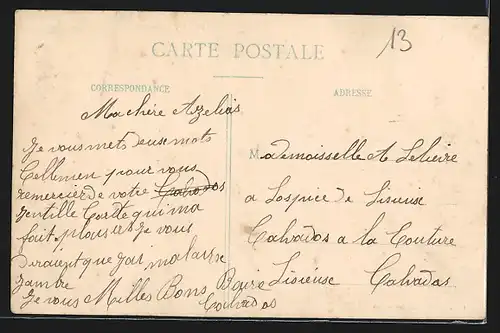 13
CARTE POSTALE
CORRESPONDANCE
ADRESSE
Ma chère Azeliás
Je vous mets deuse mots
Cellemen pour vous
remercier de votre Calvados
Jentille Cartte qui ma
fait plousirs Je vous
diraient que jai mal a la
Jambe
Je vous Milles Bons Baire
Calvados
Mademoisselle A Lelieire
a Lospice de Lisieuse
Calvados a la Couture
Lisieuse Calvados